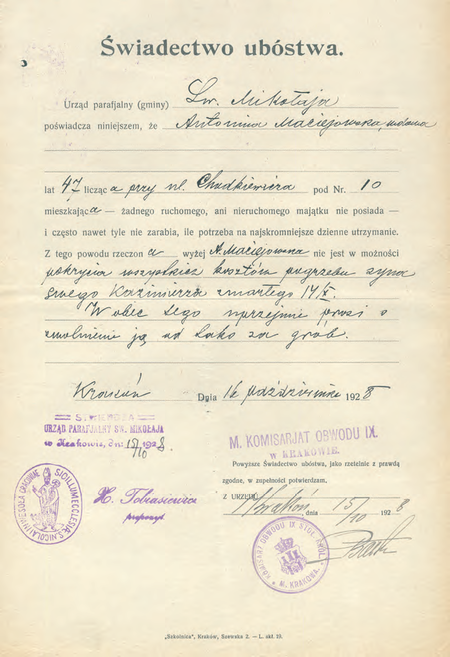 Świadectwo ubóstwa.
Urząd parafjalny (gminy) Św. Mikołaja
poświadcza niniejszem, że Antonina Maciejowska, wdowa
lat 47 licząca przy ul. Chodkiewicza pod Nr. 10
mieszkająca — żadnego ruchomego, ani nieruchomego majątku nie posiada —
i często nawet tyle nie zarabia, ile potrzeba na najskromniejsze dzienne utrzymanie.
Z tego powodu rzeczona wyżej A. Maciejowska nie jest w możności
pokrycia wszystkich kosztów pogrzebu syna
swego Kazimierza zmarłego 14/X.
W obec tego uprzejmie prosi o
zwolnienie ją od taks za grób.
Kraków Dnia 16 października 1928
URZĄD PARAFJALNY ŚW. MIKOŁAJA
w Krakowie, dnia 15/10 1928.
M. KOMISARJAT OBWODU IX.
W KRAKOWIE.
Powyższe Świadectwo ubóstwa, jako rzetelnie z prawdą
zgodne, w zupełności potwierdzam.
Z URZĘDU Kraków dnia 15/10 1928
SIGILLUM ECCLESIAE S. NICOLAI
proboszcz
KOMISARZ OBWODU IX STOŁ. KRÓL.
M. KRAKOWA.
„Szkolnica", Kraków, Szewska 2. — L. skł. 10.